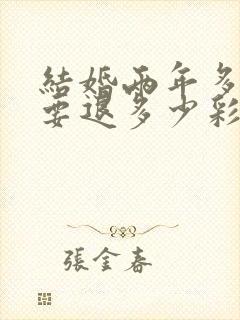 結婚兩年多
要退多少彩
張金春